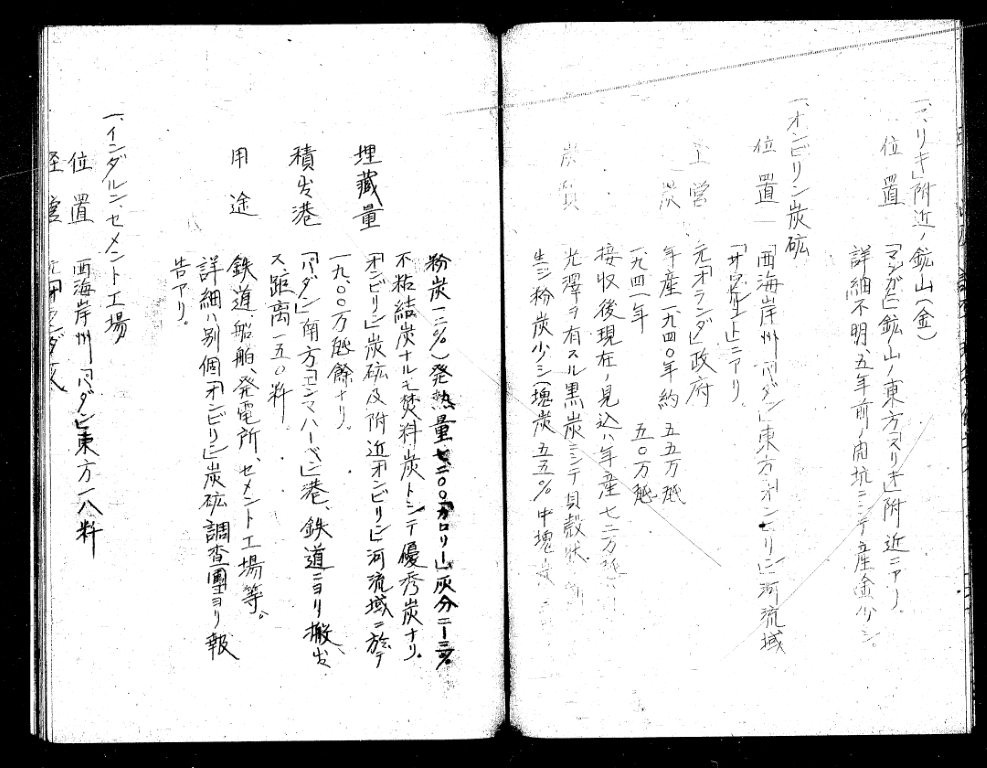 一、「リキ」附近ノ鉱山(金)
位置 「マンガニ」鉱山ノ東方「スリキ」附近ニアリ。
詳細不明、五年前ノ開坑ニシテ産金少シ
一、「オンビリン」炭砿
位置 西海岸州「パダン」東方「オンビリン」河流域
ニアリ。
営 元「オランダ」政府
炭 年産一九四〇年約 五五万瓲
一九四一年 五〇万瓲
接収後現在ノ見込ハ年産七二万瓲
炭質 光澤ヲ有スル黒炭ニシテ貝殻状
生シ粉炭少シ(塊炭五五%中塊炭
粉炭一二%)発熱量七二〇〇「カロリー」灰分二ー三%
不粘結炭ナルモ焚料炭トシテ優秀炭ナリ。
埋蔵量 「オンビリン」炭砿及附近「オンビリン」河流域ニ於テ
一九〇〇万瓲餘ナリ。
積出港 「パダン」南方「エンマハーベン」港、鉄道ニヨリ搬出
ス距離一五〇粁。
用途 鉄道、船舶、発電所、セメント工場等。
詳細ハ別個「オンビリン」炭砿調査團ヨリ報
告アリ。
一、インダルン、セメント工場
位置 西海岸州「パダン」東方一八粁
経営 元「オランダ」人